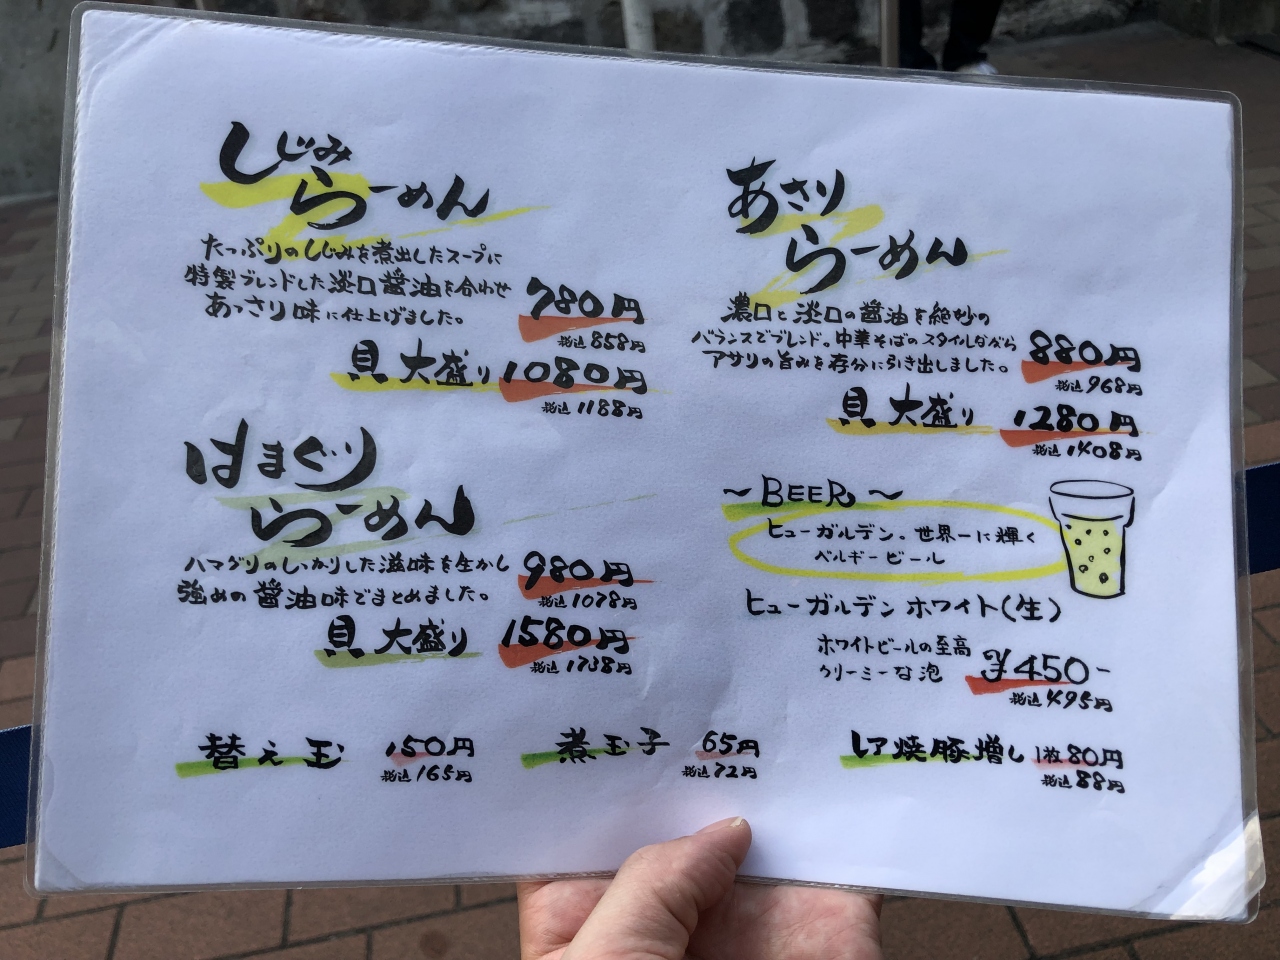 しじみ
らーめん
たっぷりのしじみを煮出したスープに
特製ブレンドした淡口醤油を合わせ
あっさり味に仕上げました。
780円
税込858円
貝大盛り 1080円
税込1188円
はまぐり
らーめん
ハマグリのしっかりした滋味を生かし
強めの醤油味でまとめました。
980円
税込1078円
貝大盛り 1580円
税込1738円
あさり
らーめん
濃口と淡口の醤油を絶妙の
バランスでブレンド。中華そばのスタイルながら
アサリの旨みを存分に引き出しました。
880円
税込968円
貝大盛り 1280円
税込1408円
～BEER～
ヒューガルデン。世界一に輝く
ベルギービール
ヒューガルデンホワイト(生)
ホワイトビールの至高
クリーミーな泡
¥450-
税込495円
替え玉 150円
税込165円
煮玉子 65円
税込72円
レア焼豚増し 1枚80円
税込88円